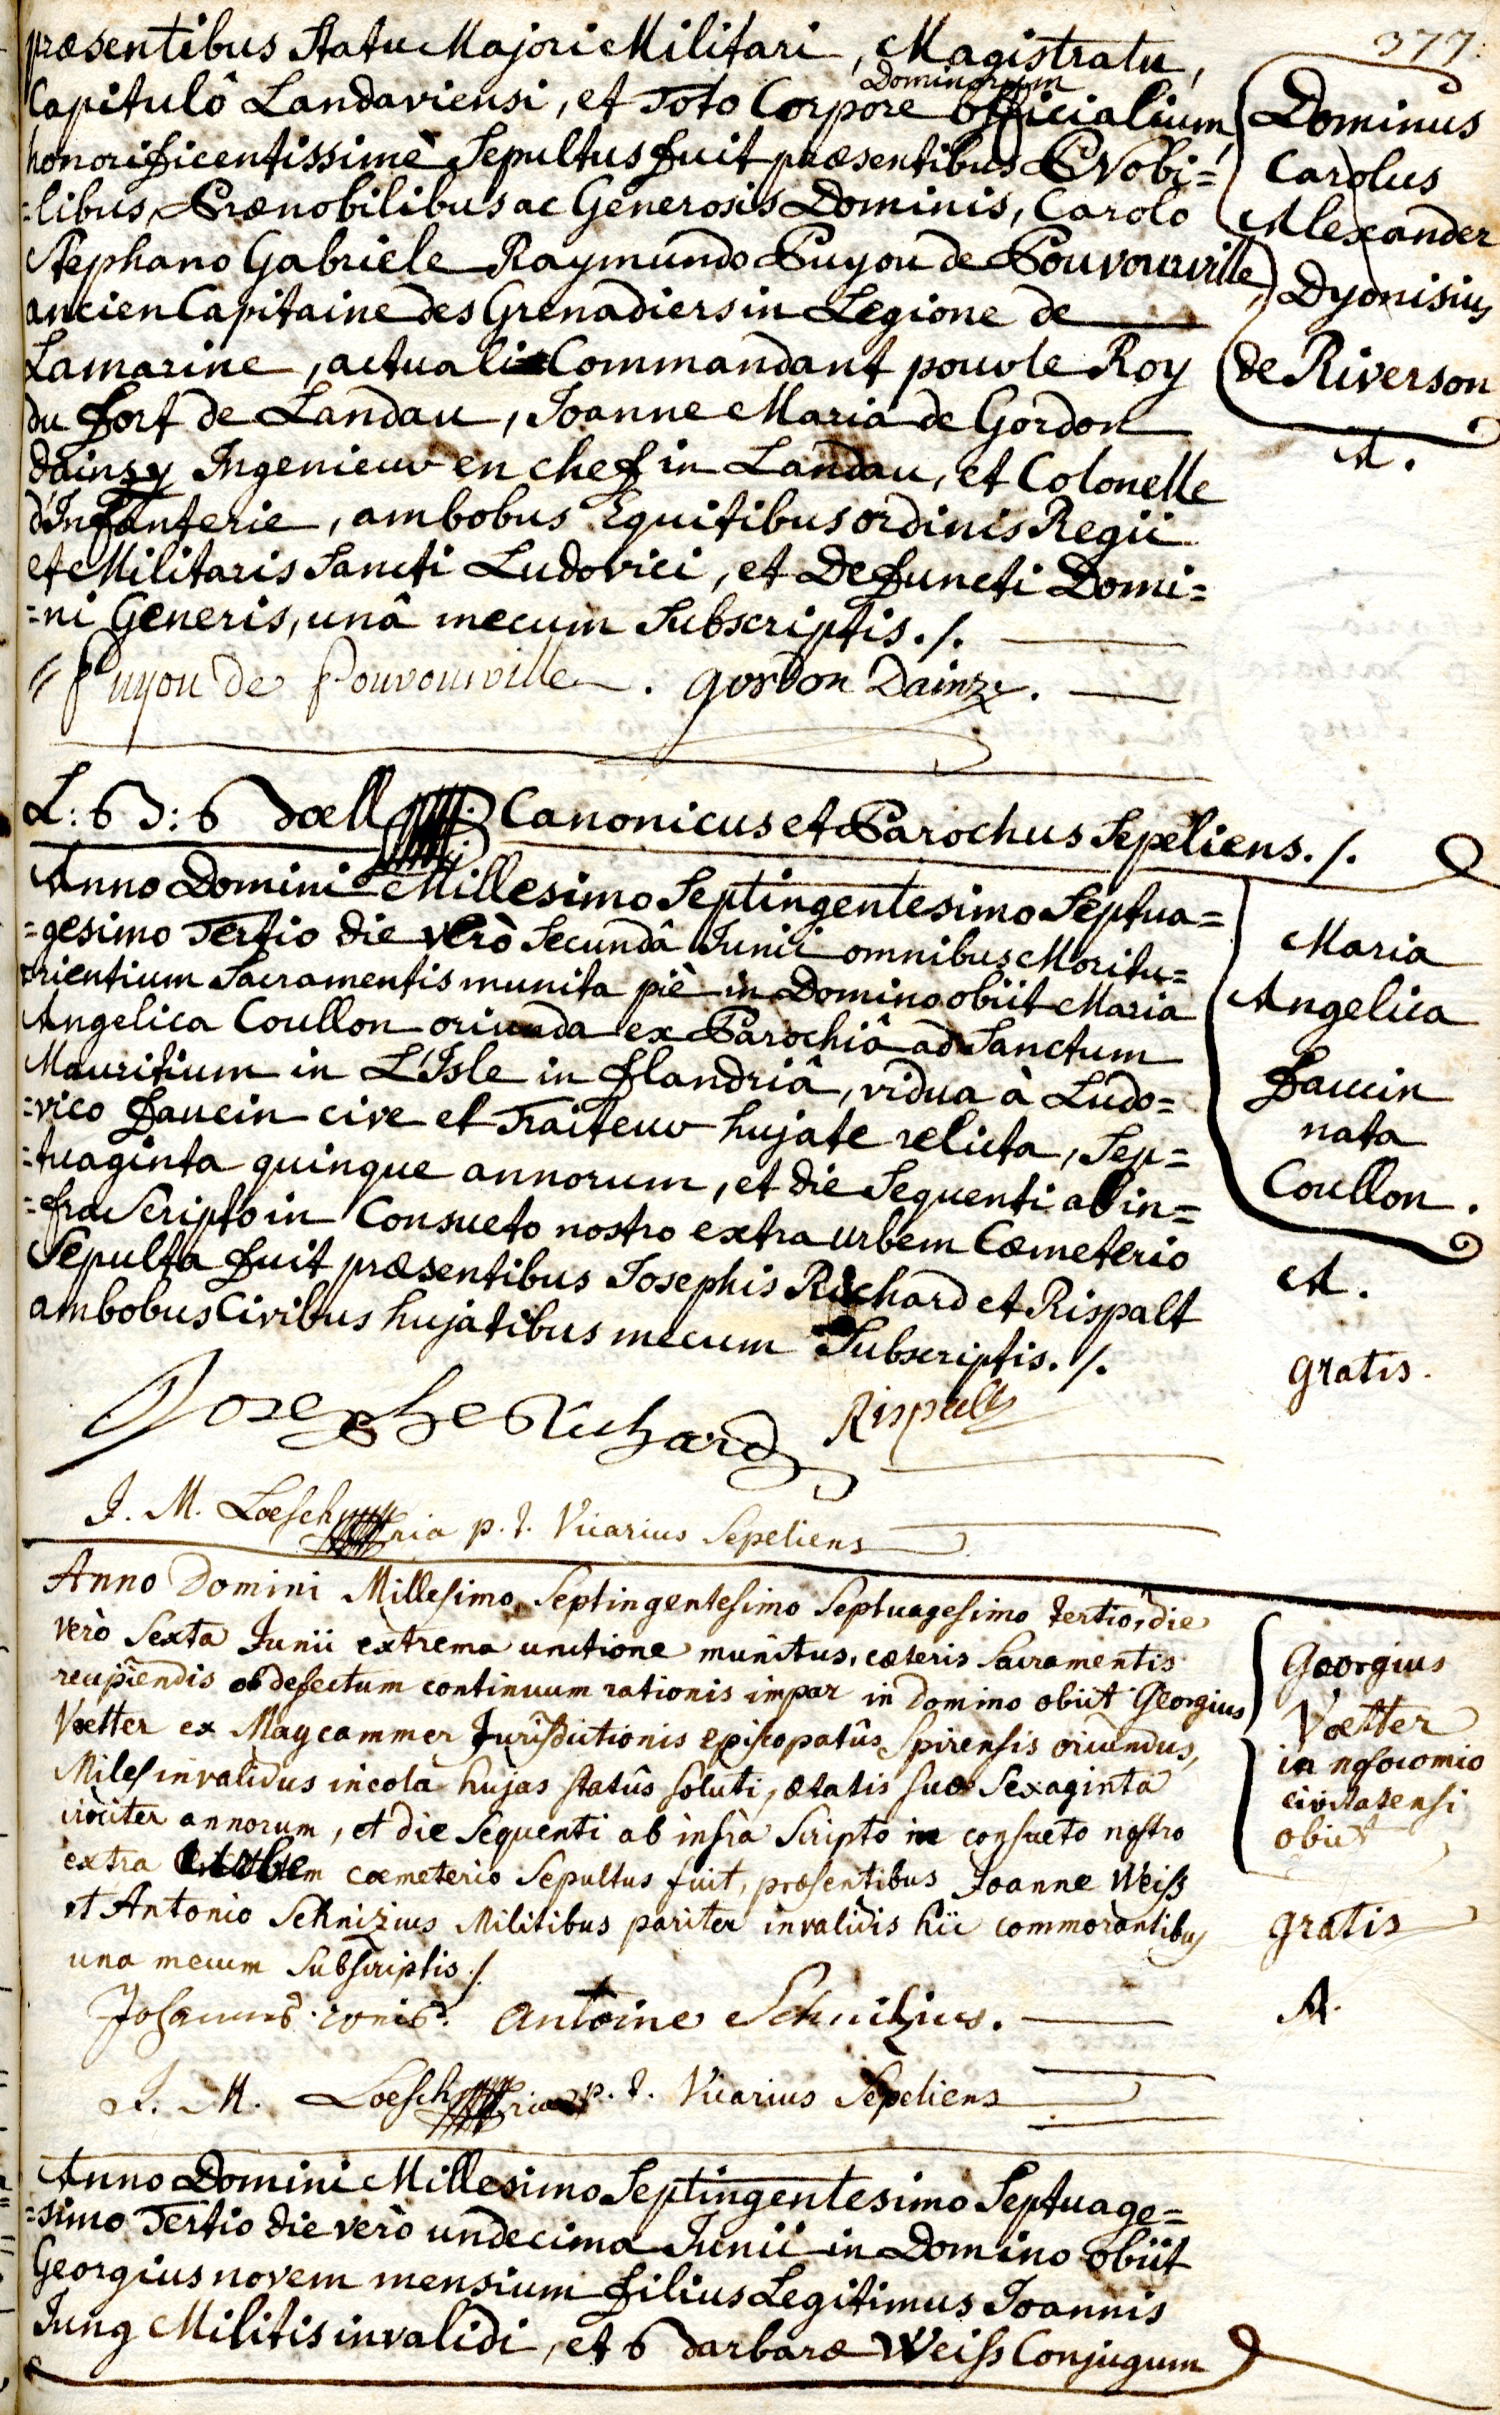 377.
præsentibus Statu Majori Militari, Magistratu,
Capitulô Landaviensi, et Toto Corpore Dominorum officialium,
honorificentissimè Sepultus fuit præsentibus Nobi=
=libus, Prænobilibus ac Generosis Dominis, Carolo
Stephano Gabriele Raymundo Puyou de Pouvourville,
ancien Capitaine des Grenadiers in Legione de
Lamarine, actuali Commandant pour le Roy
du fort de Landau, Joanne Maria de Gordon
dainzy Ingenieur en chef in Landau, et Colonelle
d'Infanterie, ambobus Equitibus ordinis Regii
et Militaris Sancti Ludovici, et Defuncti Domi=
=ni Generis, unâ mecum Subscriptis./.
Puyou de Pouvourville. gordon Dainzy.
Dominus
Carolus
Alexander
Dyonisius
de Riverson
A.
Canonicus et Parochus Sepeliens./.
Anno Domini Millesimo Septingentesimo Septua=
=gesimo Tertio die verò Secundâ Junii omnibus Moritu=
rientium Sacramentis munita piè in Domino obiit Maria
Angelica Coullon oriunda ex Parochiâ ad Sanctum
Mauritium in L'Isle in flandriâ, vidua à Ludo=
=vico faucin cive et Traiteur hujate relicta, Sep=
=tuaginta quinque annorum, et die Sequenti ab in=
=fra Scripto in Consueto nostro extra urbem Cœmeterio
Sepulta fuit præsentibus Josephis Richard et Rispalt
ambobus Civibus hujatibus mecum Subscriptis./.
Josephe Richard Rispalt
J. M. Loesch p. t. Vicarius Sepeliens
Maria
Angelica
faucin
nata
Coullon.
A.
gratis.
Anno Domini Millesimo Septingentesimo Septuagesimo tertio, die
verò Sexta Junii extrema unctione munitus, cæteris Sacramentis
recipiendis ob defectum continuum rationis impar in Domino obiit Georgius
Vœtter ex Maycammer Jurisdictionis episcopatûs Spirensis oriundus,
Miles invalidus incola hujas statûs soluti, ætatis suæ Sexaginta
circiter annorum, et die Sequenti ab infrà Scripto in consueto nostro
extra cœmeterio Sepultus fuit, præsentibus Joanne Weiss
et Antonio Schnizius Militibus pariter invalidis hîc commorantibus
una mecum Subscriptis./.
Johannes antoine Schnitzius.
J. M. Loesch p. t. Vicarius Sepeliens
Georgius
Vœtter
in nosocomio
civitatensi
obiit
gratis
A.
Anno Domini Millesimo Septingentesimo Septuage=
=simo Tertio die verò undecima Junii in Domino obiit
Georgius novem mensium filius Legitimus Joannis
Jung Militis invalidi, et Barbaræ Weiss Conjugum